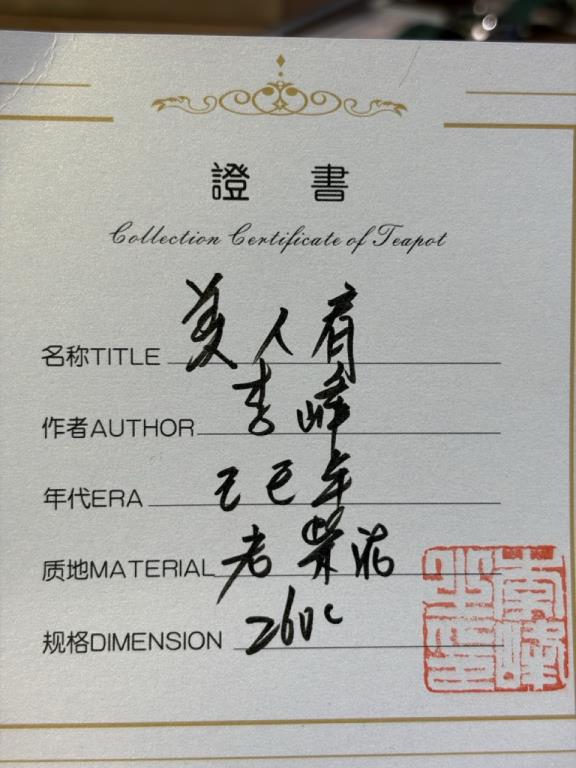 證書
Collection Certificate of Teapot
名称TITLE 美人肩
作者AUTHOR 李峰
年代ERA 乙巳年
质地MATERIAL 老紫泥
规格DIMENSION 260c